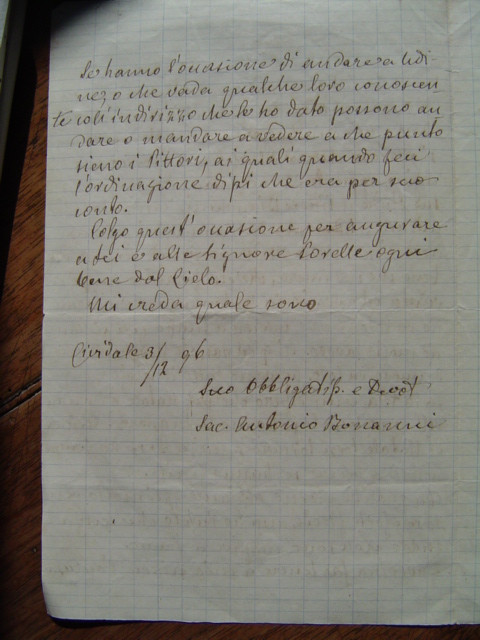 Se hanno l'occasione di andare a Udi-
ne, o che vada qualche loro conoscen
te coll'indirizzo che le ho dato possono an
dare o mandare a vedere a che punto
sieno i Pittori, ai quali quando feci
l'ordinazione dissi che era per suo
conto.
Colgo quest'occasione per augurare
a Lei e alle Signore Sorelle ogni
bene dal Cielo.
Mi creda quale sono
Cividale 3/12 96
Suo Obbligatiss. e Devot
Sac. Antonio Bonanni